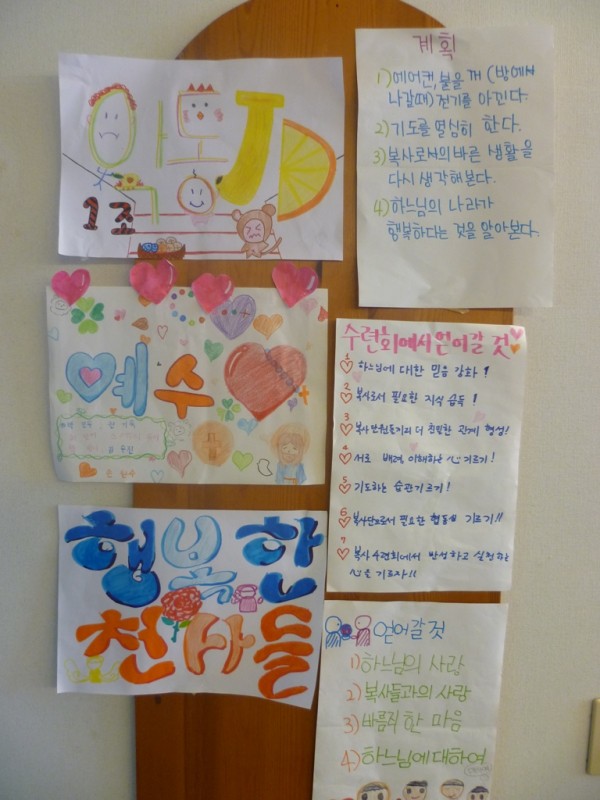 악동JD
1조
계획
1) 에어컨, 불을 꺼 (방에서
나갈때) 전기를 아낀다.
2) 기도를 열심히 한다.
3) 복사로서의 바른 생활을
다시 생각해본다.
4) 하느님의 나라가
행복하다는 것을 알아본다.
예수
수련회에서 얻어갈 것
1 하느님에 대한 믿음 강화!
2 복사로서 필요한 지식 습득!
3 복사단원들끼리 더 친밀한 관계 형성!
4 서로 배려, 이해하는 心 기르기!
5 기도하는 습관기르기!
6 복사단으로서 필요한 협동심 기르기!!
7 복사 수련회에서 반성하고 실천하는
心을 기르자!!
행복한
천사들
얻어갈 것
1) 하느님의 사랑
2) 복사들과의 사랑
3) 바름직한 마음
4) 하느님에 대하여